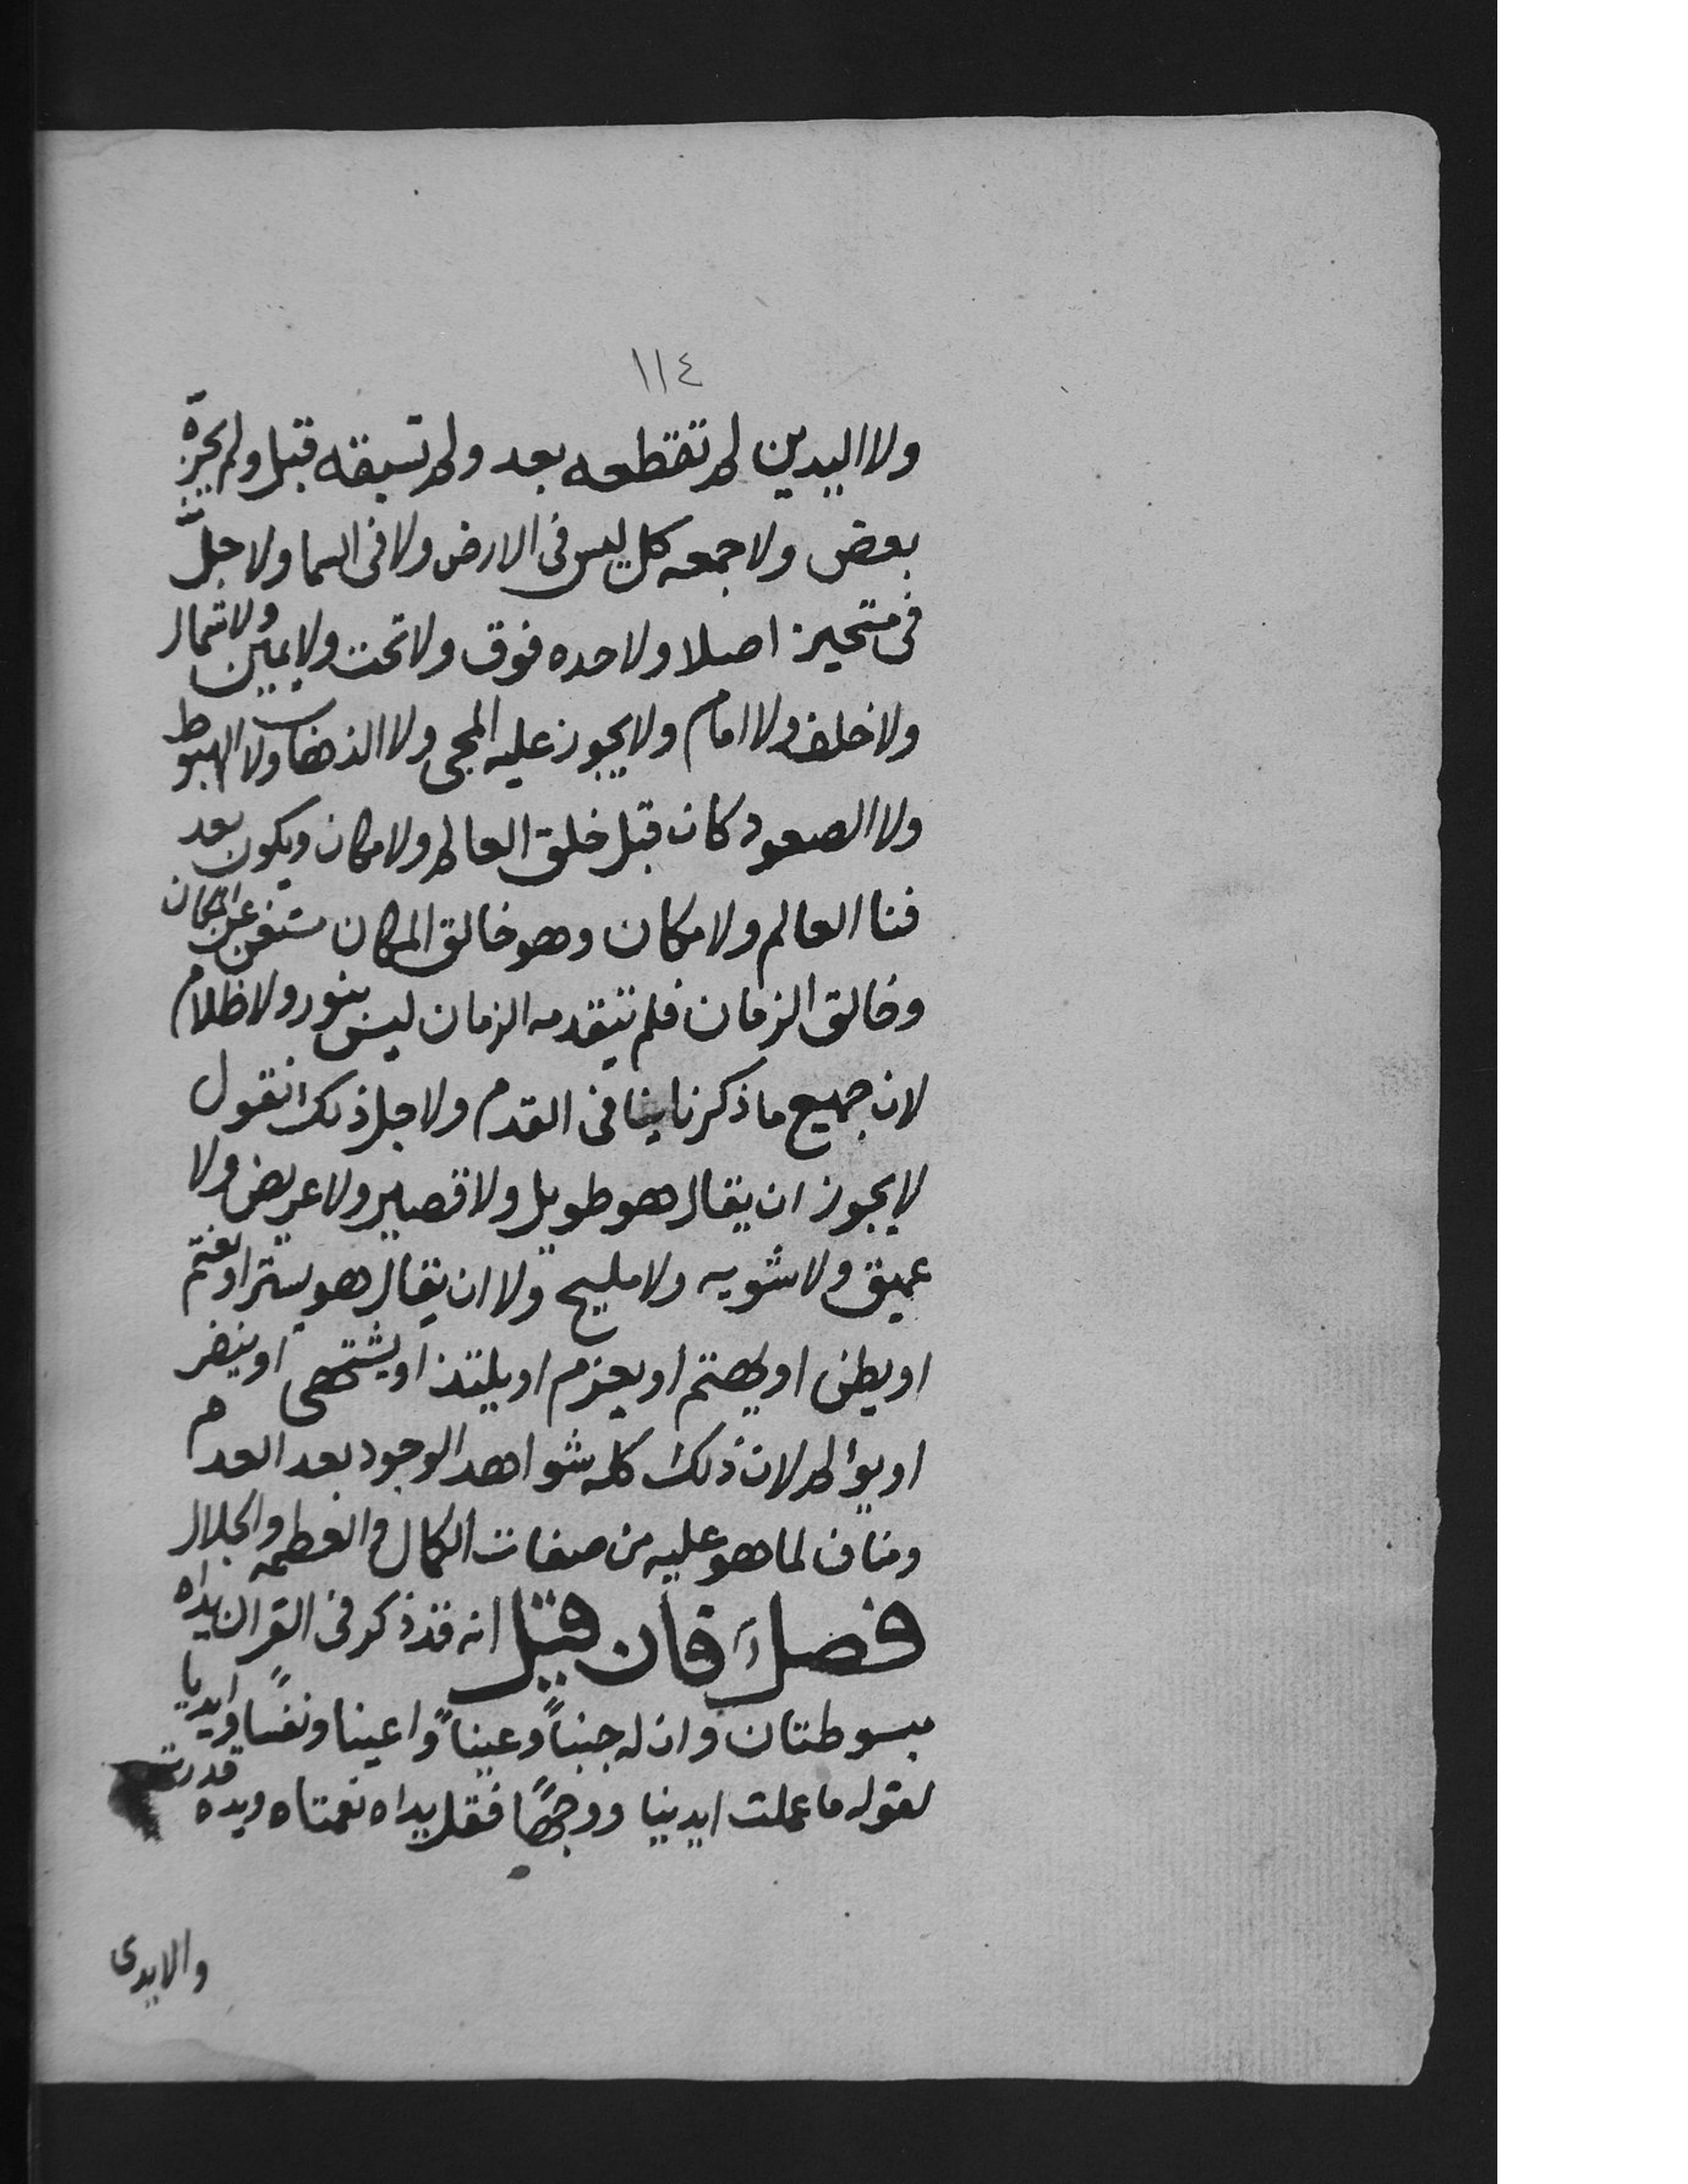 ١١٤
ولا اليدين لم تقطعه بعد ولم تسبقه قبل ولم يجزه
بعض ولا جمعه كل ليس فى الارض ولا فى السما ولا حل
فى متحيز اصلا ولا حده فوق ولا تحت ولا يمين ولا شمال
ولا خلف ولا امام ولا يجوز عليه المجى ولا الذهاب ولا الهبوط
ولا الصعود كان قبل خلق العالم ولا مكان ويكون بعد
فنا العالم ولا مكان وهو خالق المكان مستغن عن المكان
وخالق الزمان فلم يتقدمه الزمان ليس بنور ولا ظلام
لان جميع ما ذكرنا ينافى القدم ولاجل ذلك نقول
لا يجوز ان يقال هو طويل ولا قصير ولا عريض ولا
عميق ولا شويه ولا مليح ولا ان يقال هو يستر او يغتم
او يظن او يهتم او يعزم او يلتذ او يشتهى او ينفر
او يؤلم لان ذلك كله شواهد الوجود بعد العدم
ومناف لما هو عليه من صفات الكمال والعظمه والجلال
فصل فان قيل انه قد ذكر فى القران يداه
مبسوطتان وان له جنباً وعيناً واعينا ونفساً وايديا
لقوله ما عملت ايدينا ووجهاً فقل يداه نعمتاه ويده قدرته
والايدى